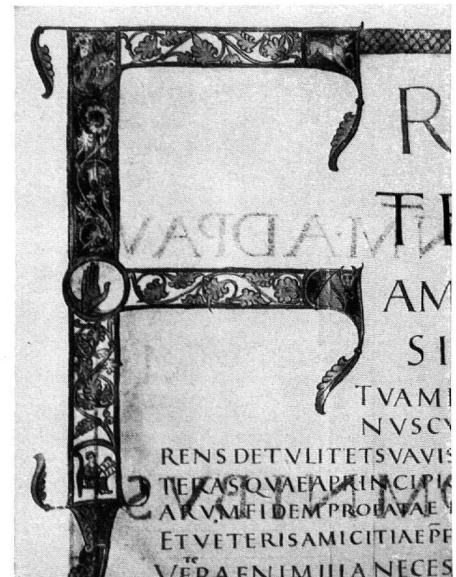 F R
TE
AM
SI
TVAMI
NVSCV
RENS DETVLIT ET SVAVIS
TERAS QVAE A PRINCIPIO
ARVM FIDEM PROBATAE
ET VETERIS AMICITIAE P̄F
VERA ENIM ILLA NECES